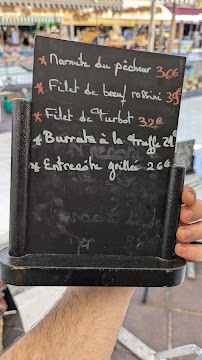 * Marmite du pêcheur 36€
* Filet de bœuf rossini 39€
* Filet de Turbot 32€
* Burrata à la truffe 21€
* Entrecôte grillée 26€